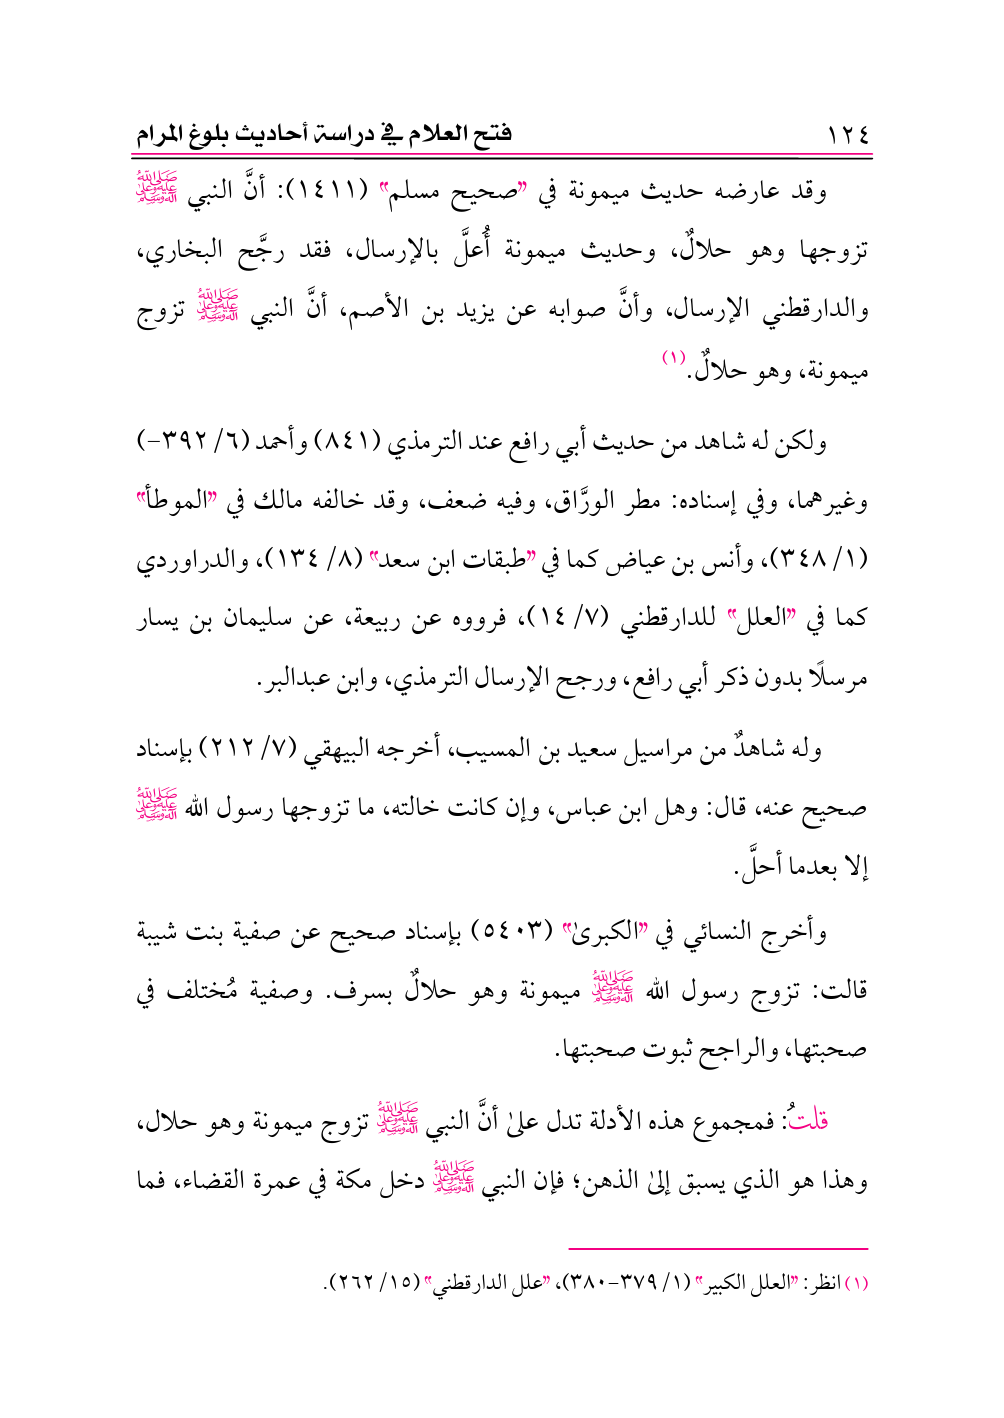 ١٢٤ فتح العلام في دراسة أحاديث بلوغ المرام
وقد عارضه حديث ميمونة في "صحيح مسلم" (١٤١١): أنَّ النبي ﷺ
تزوجها وهو حلالٌ، وحديث ميمونة أُعلَّ بالإرسال، فقد رجَّح البخاري،
والدارقطني الإرسال، وأنَّ صوابه عن يزيد بن الأصم، أنَّ النبي ﷺ تزوج
ميمونة، وهو حلالٌ.(١)
ولكن له شاهد من حديث أبي رافع عند الترمذي (٨٤١) وأحمد (٦/ ٣٩٢-)
وغيرهما، وفي إسناده: مطر الورَّاق، وفيه ضعف، وقد خالفه مالك في "الموطأ"
(١/ ٣٤٨)، وأنس بن عياض كما في "طبقات ابن سعد" (٨/ ١٣٤)، والدراوردي
كما في "العلل" للدارقطني (٧/ ١٤)، فرووه عن ربيعة، عن سليمان بن يسار
مرسلًا بدون ذكر أبي رافع، ورجح الإرسال الترمذي، وابن عبدالبر.
وله شاهدٌ من مراسيل سعيد بن المسيب، أخرجه البيهقي (٧/ ٢١٢) بإسناد
صحيح عنه، قال: وهل ابن عباس، وإن كانت خالته، ما تزوجها رسول الله ﷺ
إلا بعدما أحلَّ.
وأخرج النسائي في "الكبرىٰ" (٥٤٠٣) بإسناد صحيح عن صفية بنت شيبة
قالت: تزوج رسول الله ﷺ ميمونة وهو حلالٌ بسرف. وصفية مُختلف في
صحبتها، والراجح ثبوت صحبتها.
قلتُ: فمجموع هذه الأدلة تدل علىٰ أنَّ النبي ﷺ تزوج ميمونة وهو حلال،
وهذا هو الذي يسبق إلىٰ الذهن؛ فإن النبي ﷺ دخل مكة في عمرة القضاء، فما
(١) انظر: "العلل الكبير" (١/ ٣٧٩-٣٨٠)، "علل الدارقطني" (١٥/ ٢٦٢).